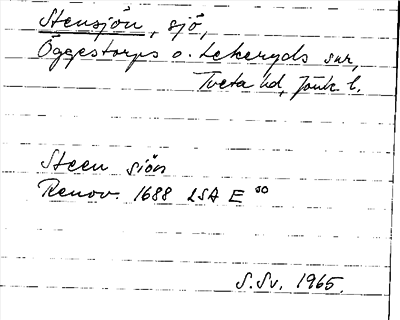 Stensjön, sjö,
Öggestorps o. Lekeryds snr,
Tveta hd, Jönk. l.
Steen siön
Renov. 1688 LSA E 80
S.Sv. 1965.